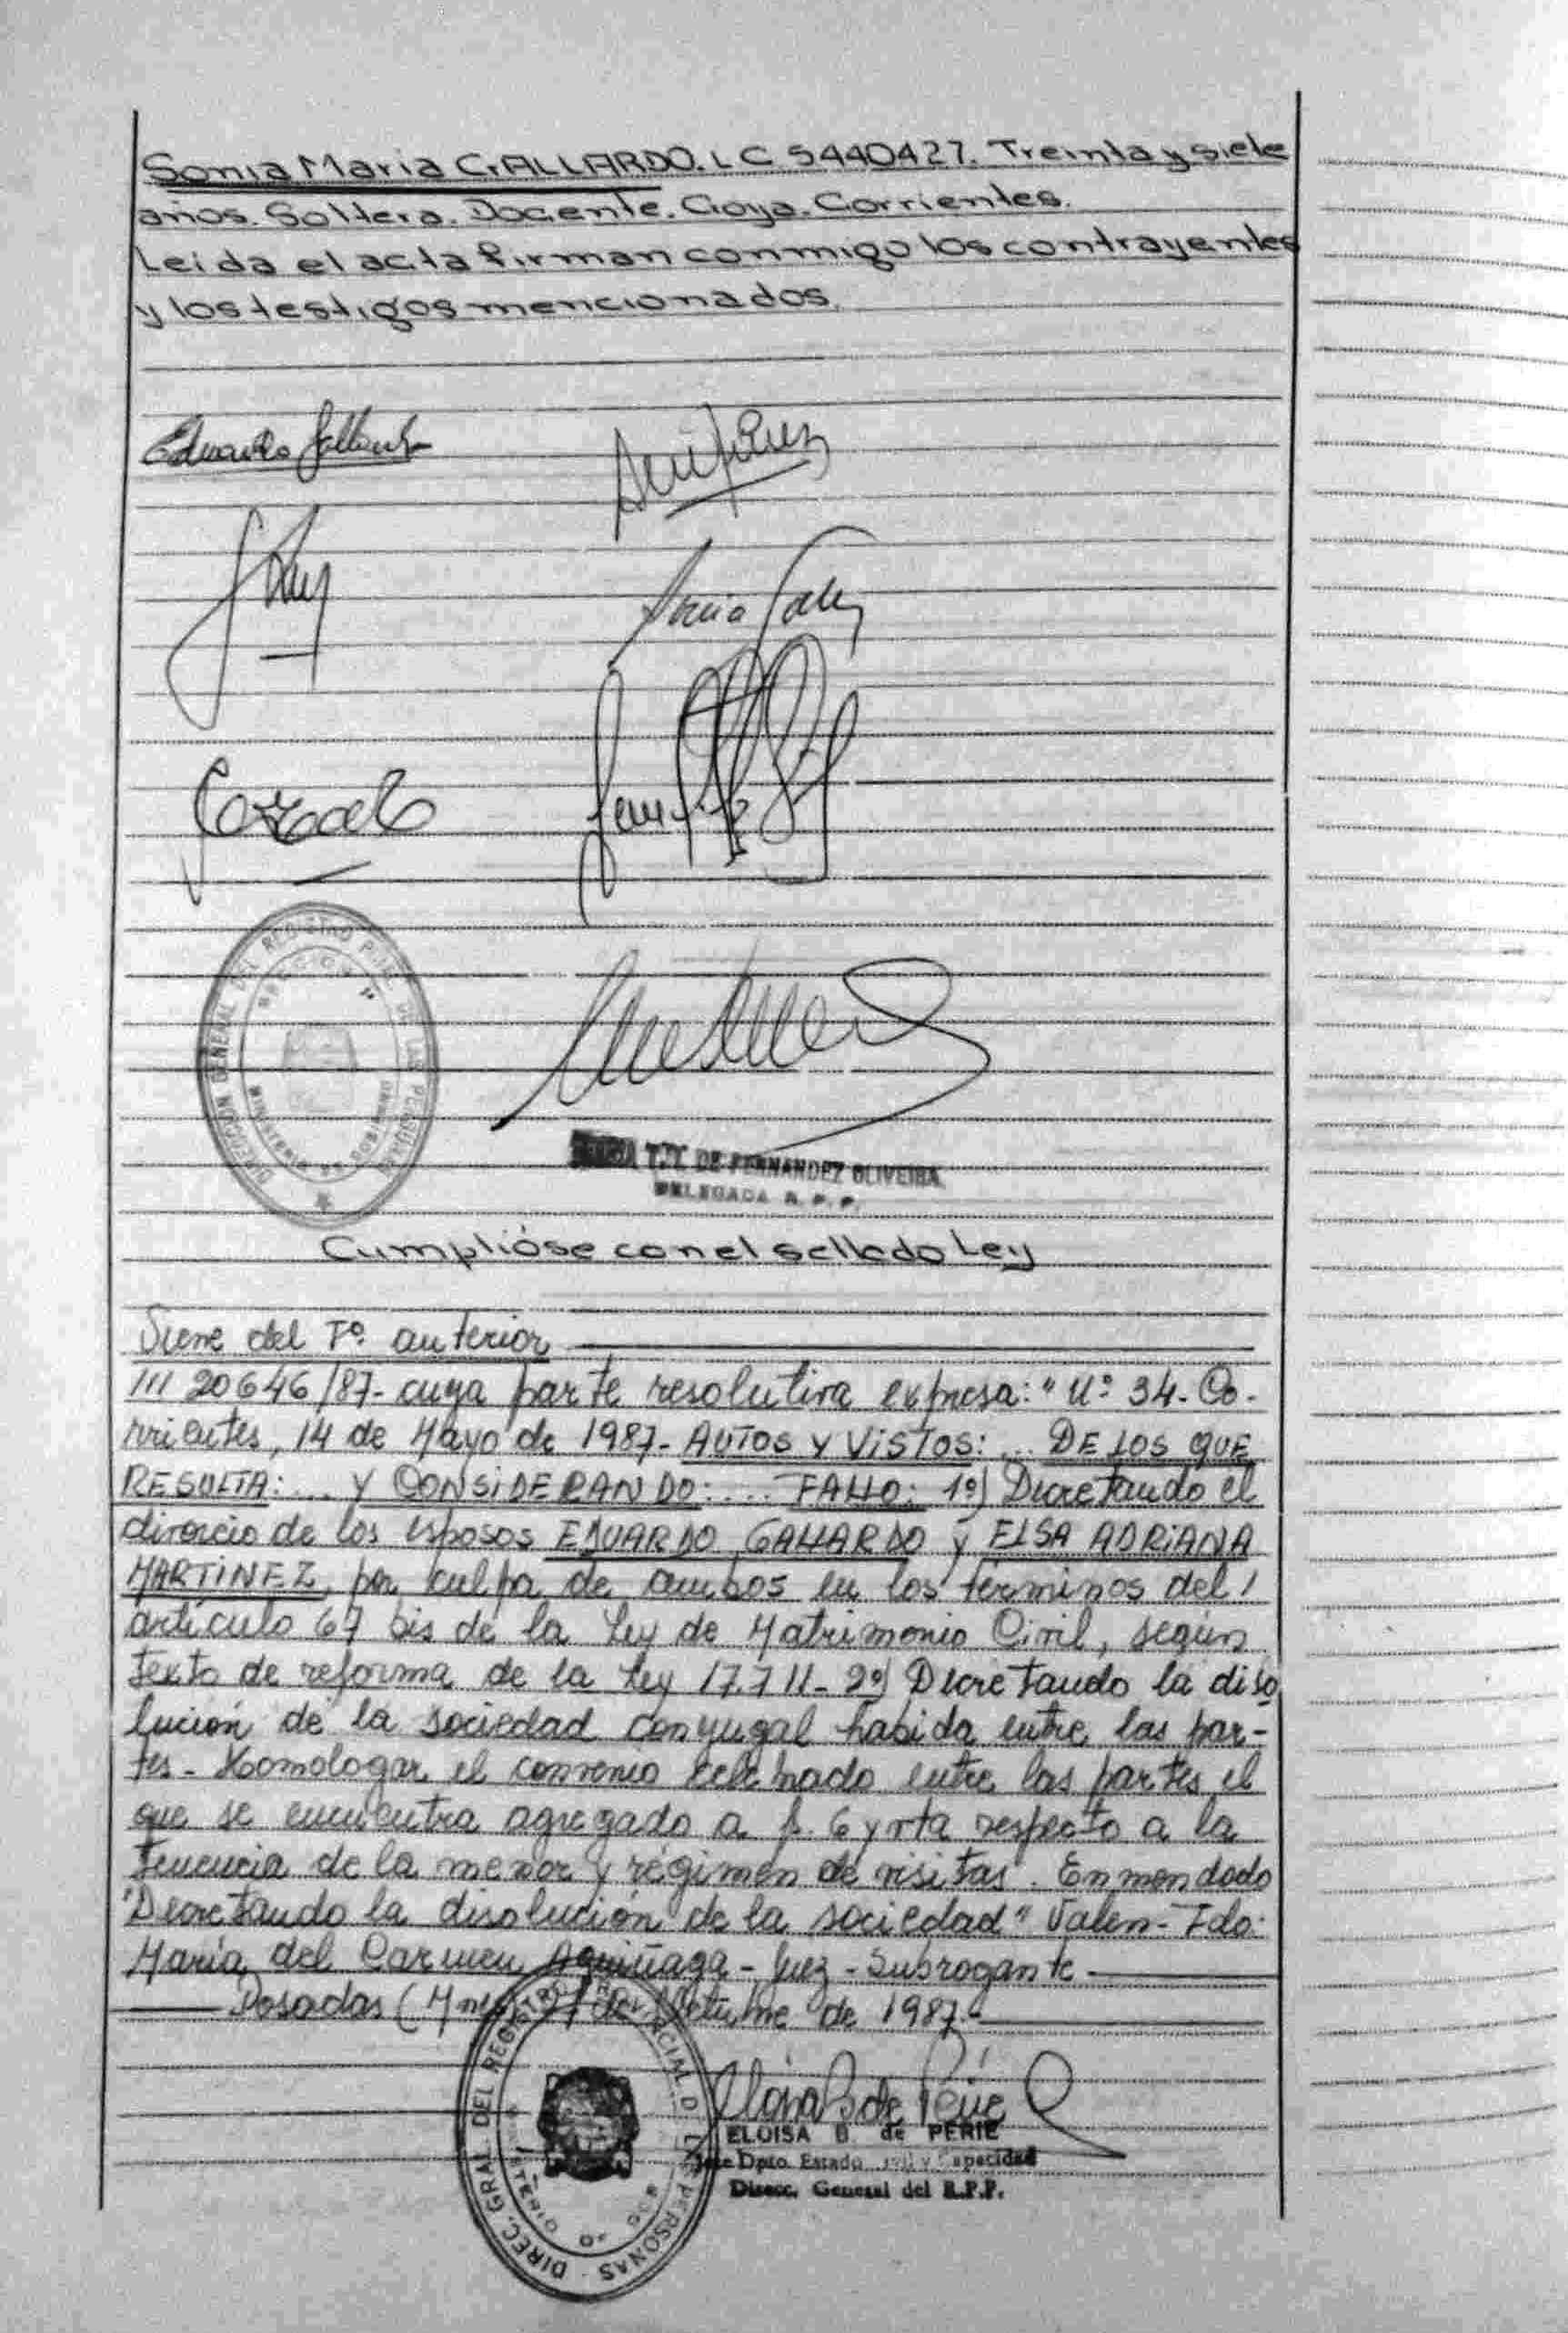 Sonia Maria GALLARDO. LC 5440427. Treinta y siete
años. Soltera. Docente. Goya. Corrientes.
Leida el acta firman conmigo los contrayentes
y los testigos mencionados.
Eduardo Gallardo
DIRECCION GENERAL DEL REGISTRO PROV. DE LAS PERSONAS
MINISTERIO DE GOBIERNO
T. Y. DE FERNANDEZ OLIVEIRA
DELEGADA R. P. P.
Cumplióse con el sellado Ley
Viene del Fº. anterior
/// 20646/87- cuya parte resolutiva expresa: "Nº 34- Co-
rrientes, 14 de Mayo de 1987- AUTOS Y VISTOS: ... DE LOS QUE
RESULTA: ... Y CONSIDERANDO: .... FALLO: 1º) Decretando el
divorcio de los esposos EDUARDO GALLARDO y ELSA ADRIANA
MARTINEZ, por culpa de ambos en los términos del /
artículo 67 bis de la Ley de Matrimonio Civil, según
texto de reforma de la Ley 17.711- 2º) Decretando la diso
lución de la sociedad conyugal habida entre las par-
tes - Homologar el convenio celebrado entre las partes el
que se encuentra agregado a f. 6 y vta respecto a la
tenencia de la menor y régimen de visitas. Enmendado
"Decretando la disolución de la sociedad" Valen- Fdo:
María del Carmen Aguiñaga - Juez - Subrogante
Posadas (Mnes) de Octubre de 1987.-
DIREC. GRAL DEL REGISTRO PROVINCIAL DE LAS PERSONAS
ELOISA B. de PERIE
Jefe Dpto. Estado Civil y Capacidad
Direcc. General del R.P.P.